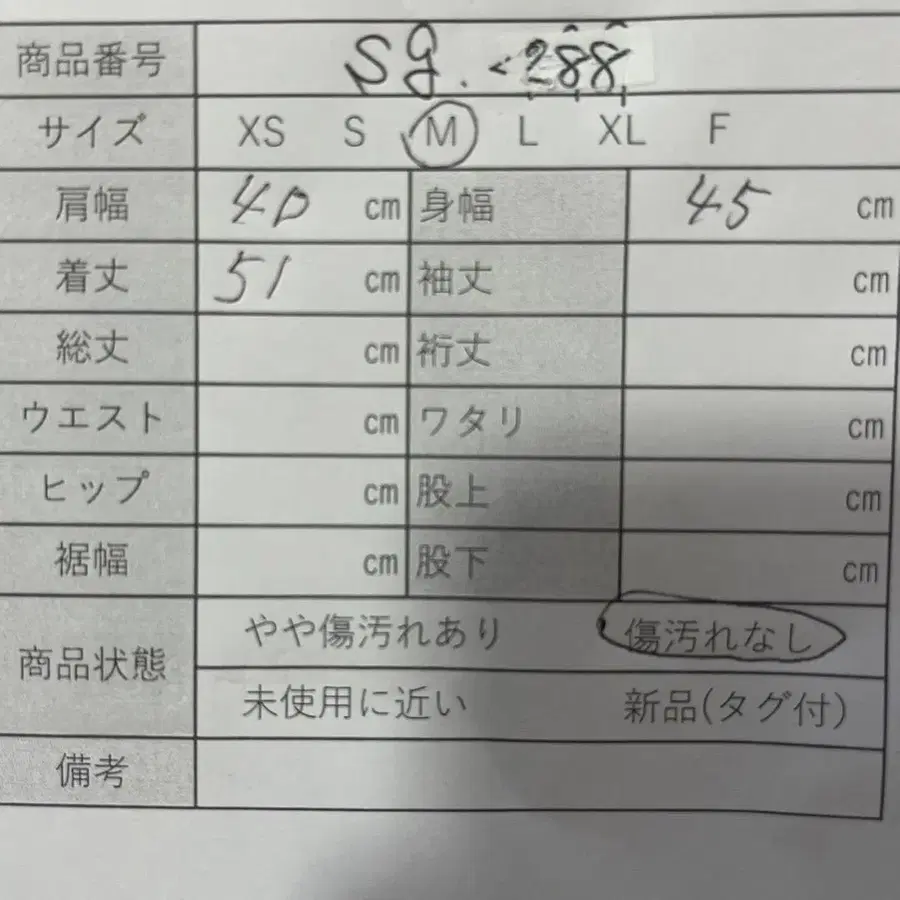 商品番号 SG.<288
サイズ XS S M L XL F
肩幅 40 cm 身幅 45 cm
着丈 51 cm 袖丈 cm
総丈 cm 裄丈 cm
ウエスト cm ワタリ cm
ヒップ cm 股上 cm
裾幅 cm 股下 cm
商品状態 やや傷汚れあり 傷汚れなし
未使用に近い 新品(タグ付)
備考